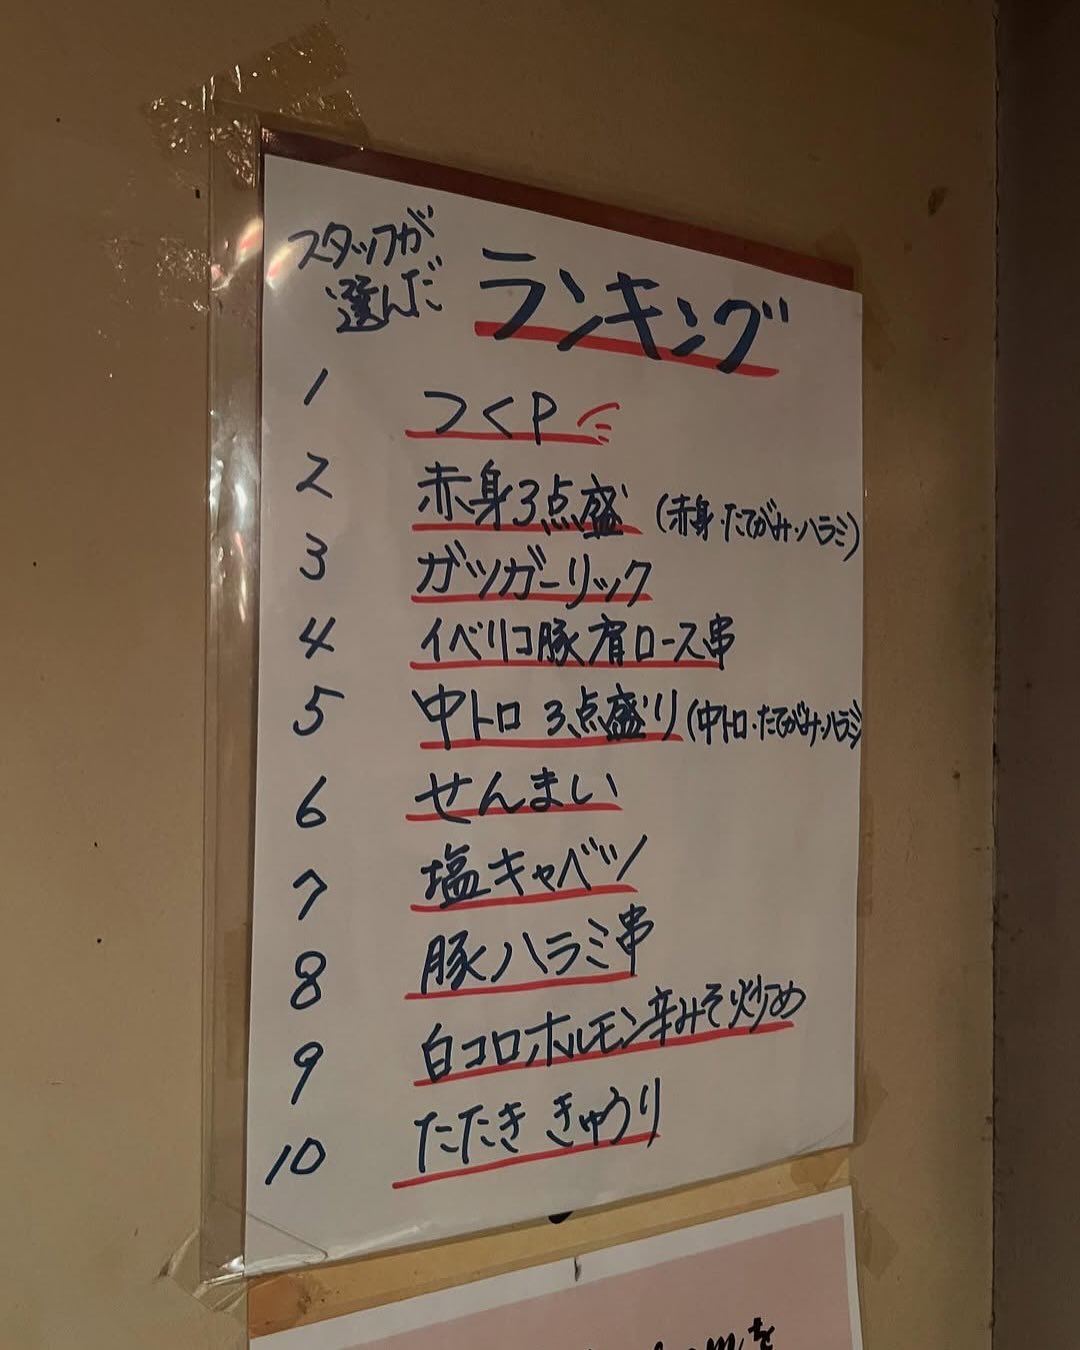 スタッフが
選んだ
ランキング
1 つくP
2 赤身3点盛 (赤身・たてがみ・ハラミ)
3 ガツガーリック
4 イベリコ豚肩ロース串
5 中トロ 3点盛り (中トロ・たてがみ・ハラミ
6 せんまい
7 塩キャベツ
8 豚ハラミ串
9 白コロホルモン辛みそ炒め
10 たたき きゅうり